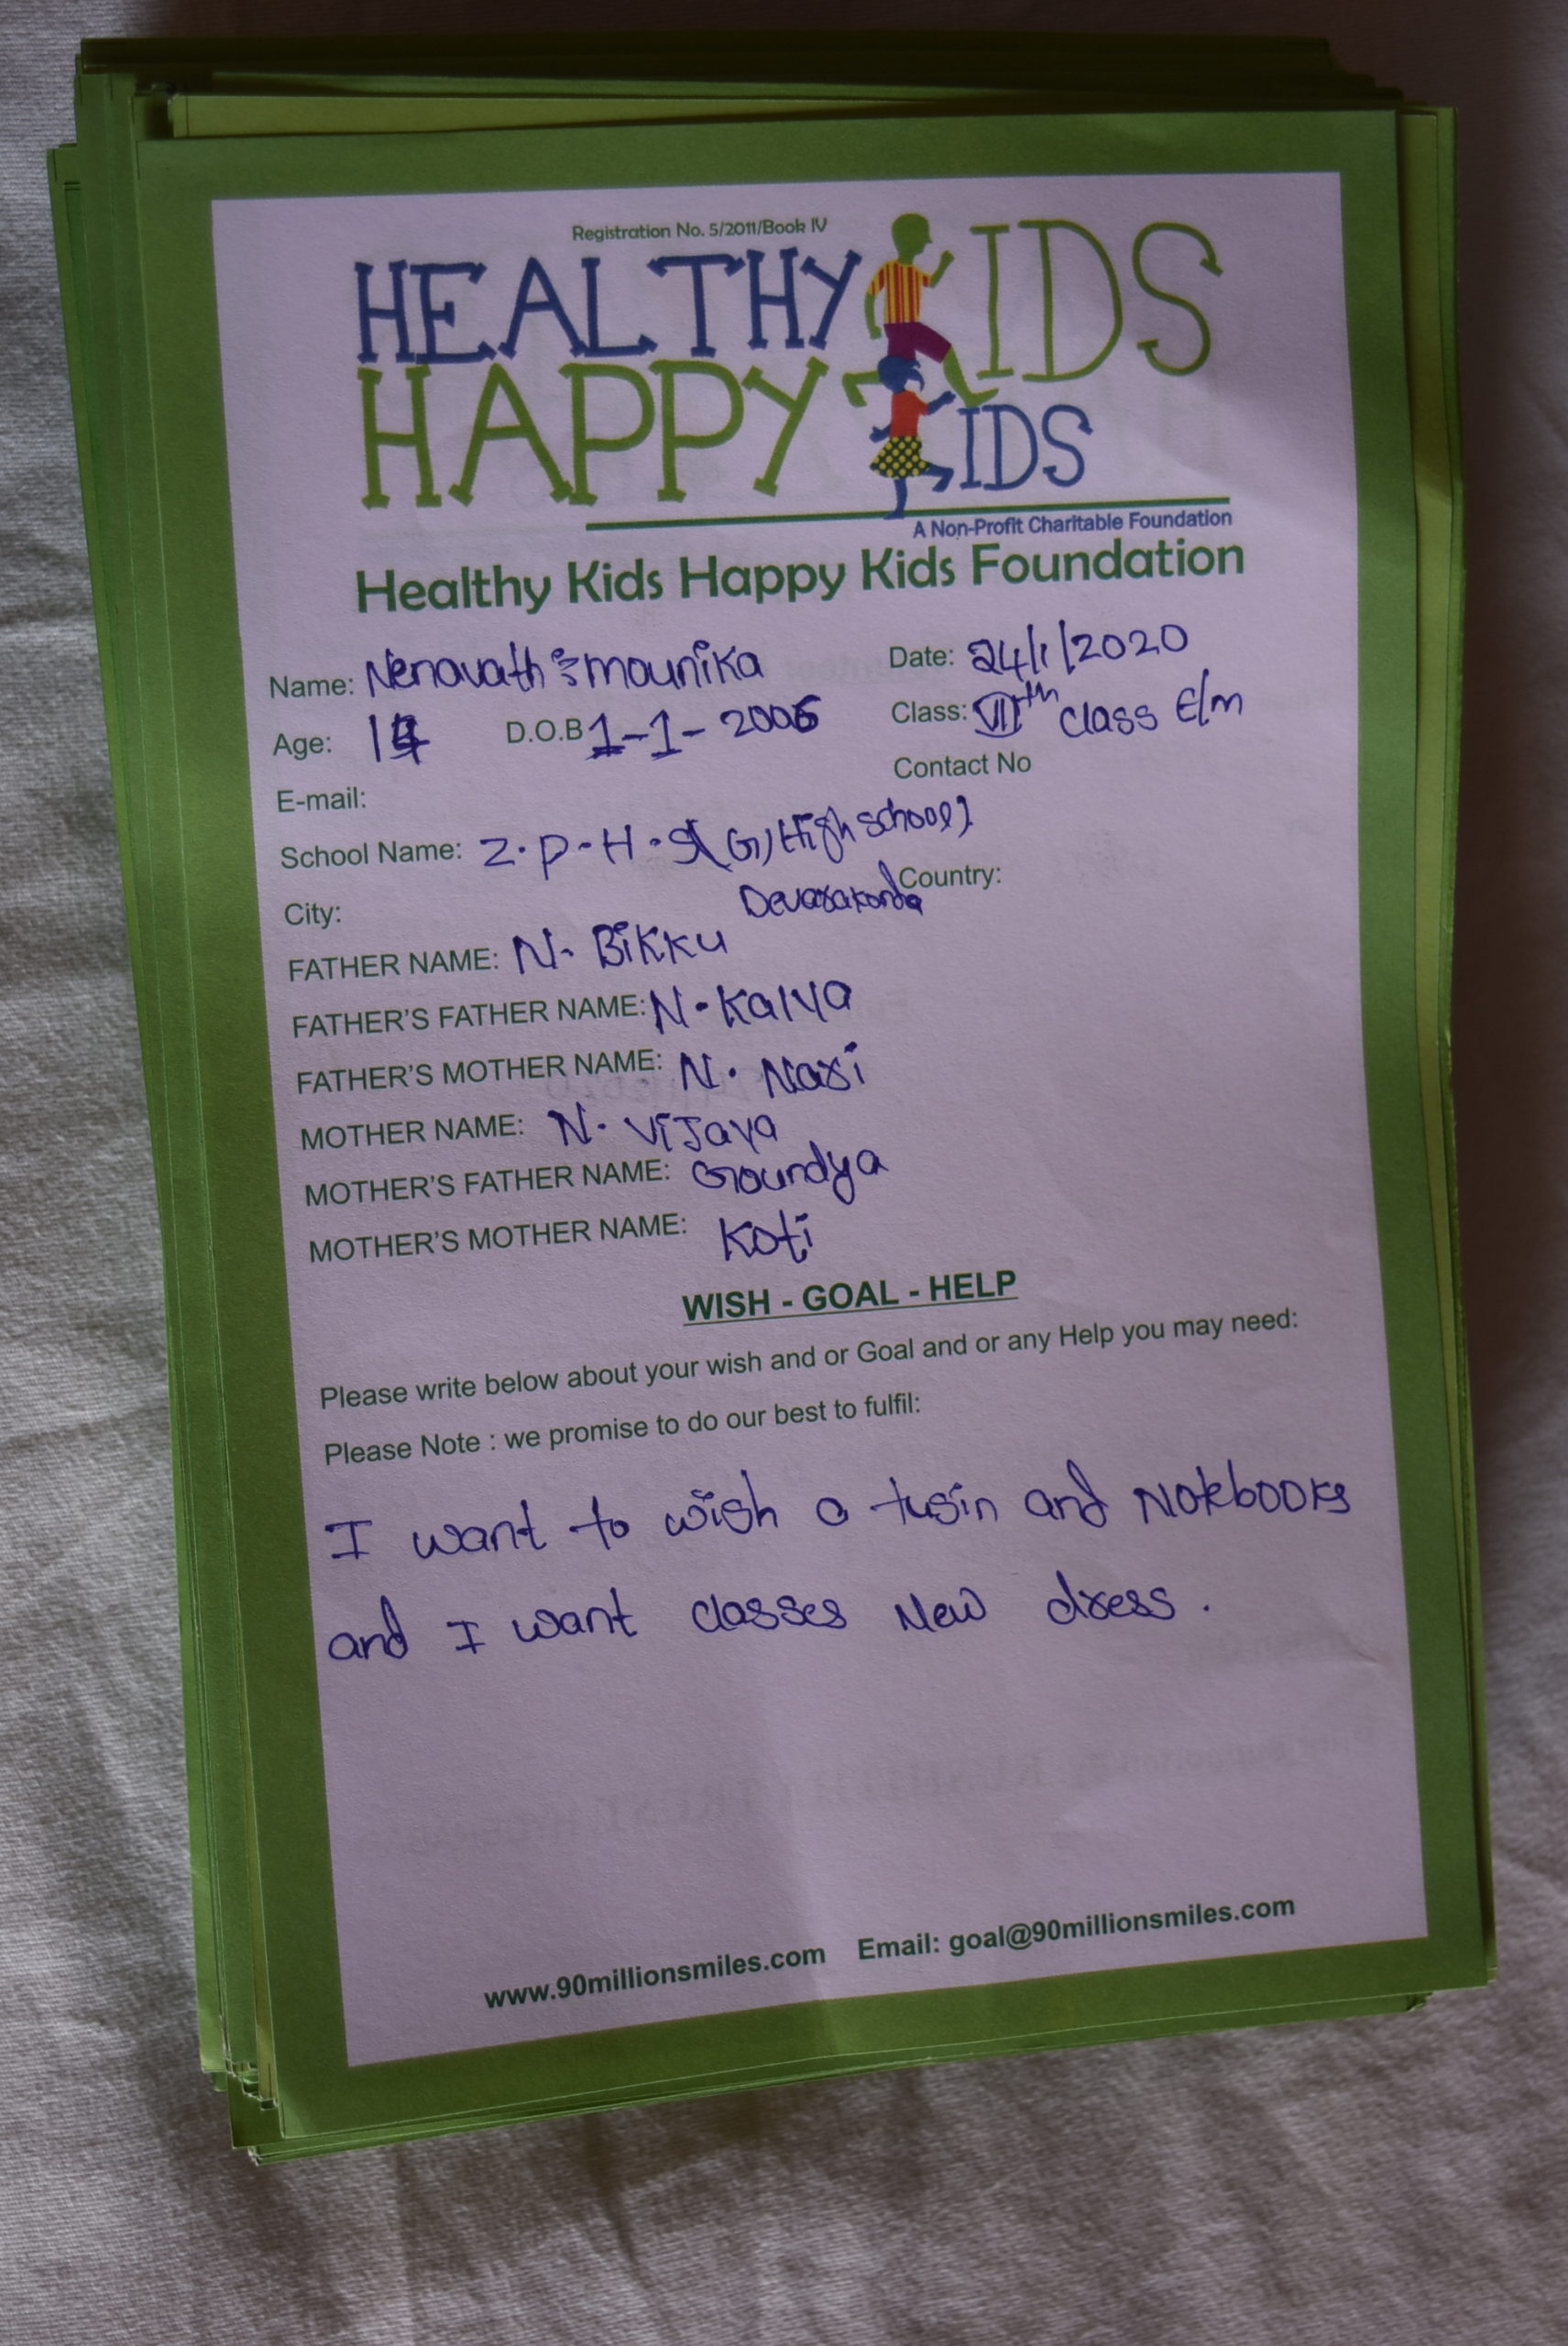 Registration No. 5/2011/Book IV
HEALTHY KIDS
HAPPY KIDS
A Non-Profit Charitable Foundation
Healthy Kids Happy Kids Foundation
Name: Nenavath :- mounika Date: 24/1/2020
Age: 14 D.O.B 1-1-2006 Class: VIIth class E/m
E-mail: Contact No
School Name: Z.P.H.S (G) High school]
City: Devarakonda Country:
FATHER NAME: N. Bikku
FATHER'S FATHER NAME: N. Kalya
FATHER'S MOTHER NAME: N. Nari
MOTHER NAME: N. Vijaya
MOTHER'S FATHER NAME: Goundya
MOTHER'S MOTHER NAME: Koti
WISH - GOAL - HELP
Please write below about your wish and or Goal and or any Help you may need:
Please Note : we promise to do our best to fulfil:
I want to wish a tusin and Notebooks
and I want classes New dress.
www.90millionsmiles.com Email: goal@90millionsmiles.com